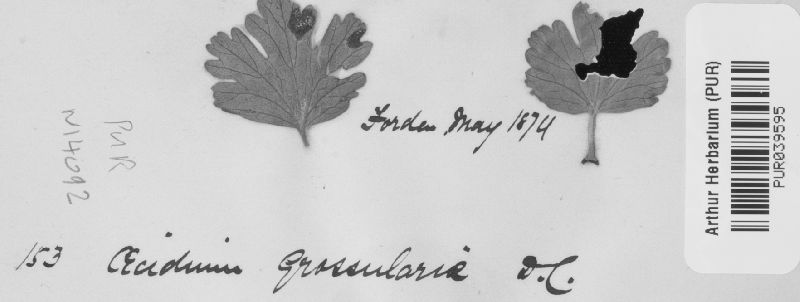 Forden May 1874
PUR
N14092
153 Œcidium Grossulariæ D.C.
Arthur Herbarium (PUR)
PUR039595